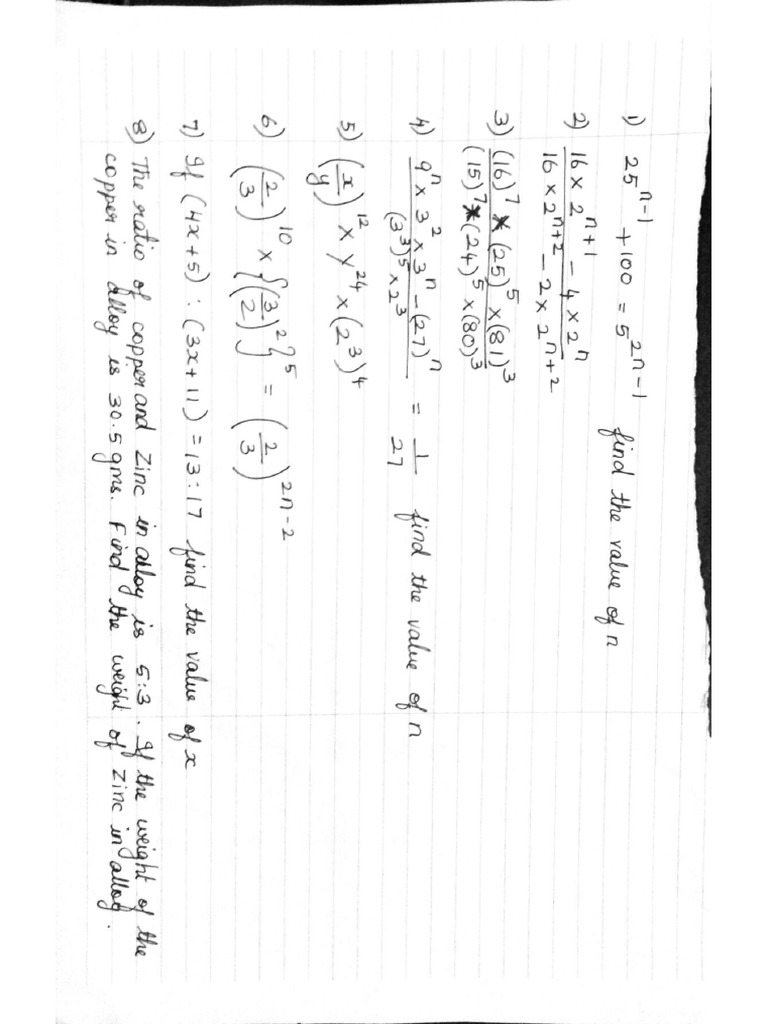 1) 25^(n-1) + 100 = 5^(2n-1) find the value of n
2) (16 × 2^(n+1) - 4 × 2^n) / (16 × 2^(n+2) - 2 × 2^(n+2))
3) ((16)^7 × (25)^5 × (81)^3) / ((15)^7 × (24)^5 × (80)^3)
4) (9^n × 3^2 × 3^n - (27)^n) / ((3^3)^5 × 2^3) = 1/27 find the value of n
5) (x/y)^12 × y^24 × (2^3)^4
6) (2/3)^10 × {(3/2)^2}^5 = (2/3)^(2n-2)
7) If (4x+5) : (3x+11) = 13:17 find the value of x
8) The ratio of copper and Zinc in alloy is 5:3. If the weight of the
copper in alloy is 30.5 gms. Find the weight of Zinc in alloy.